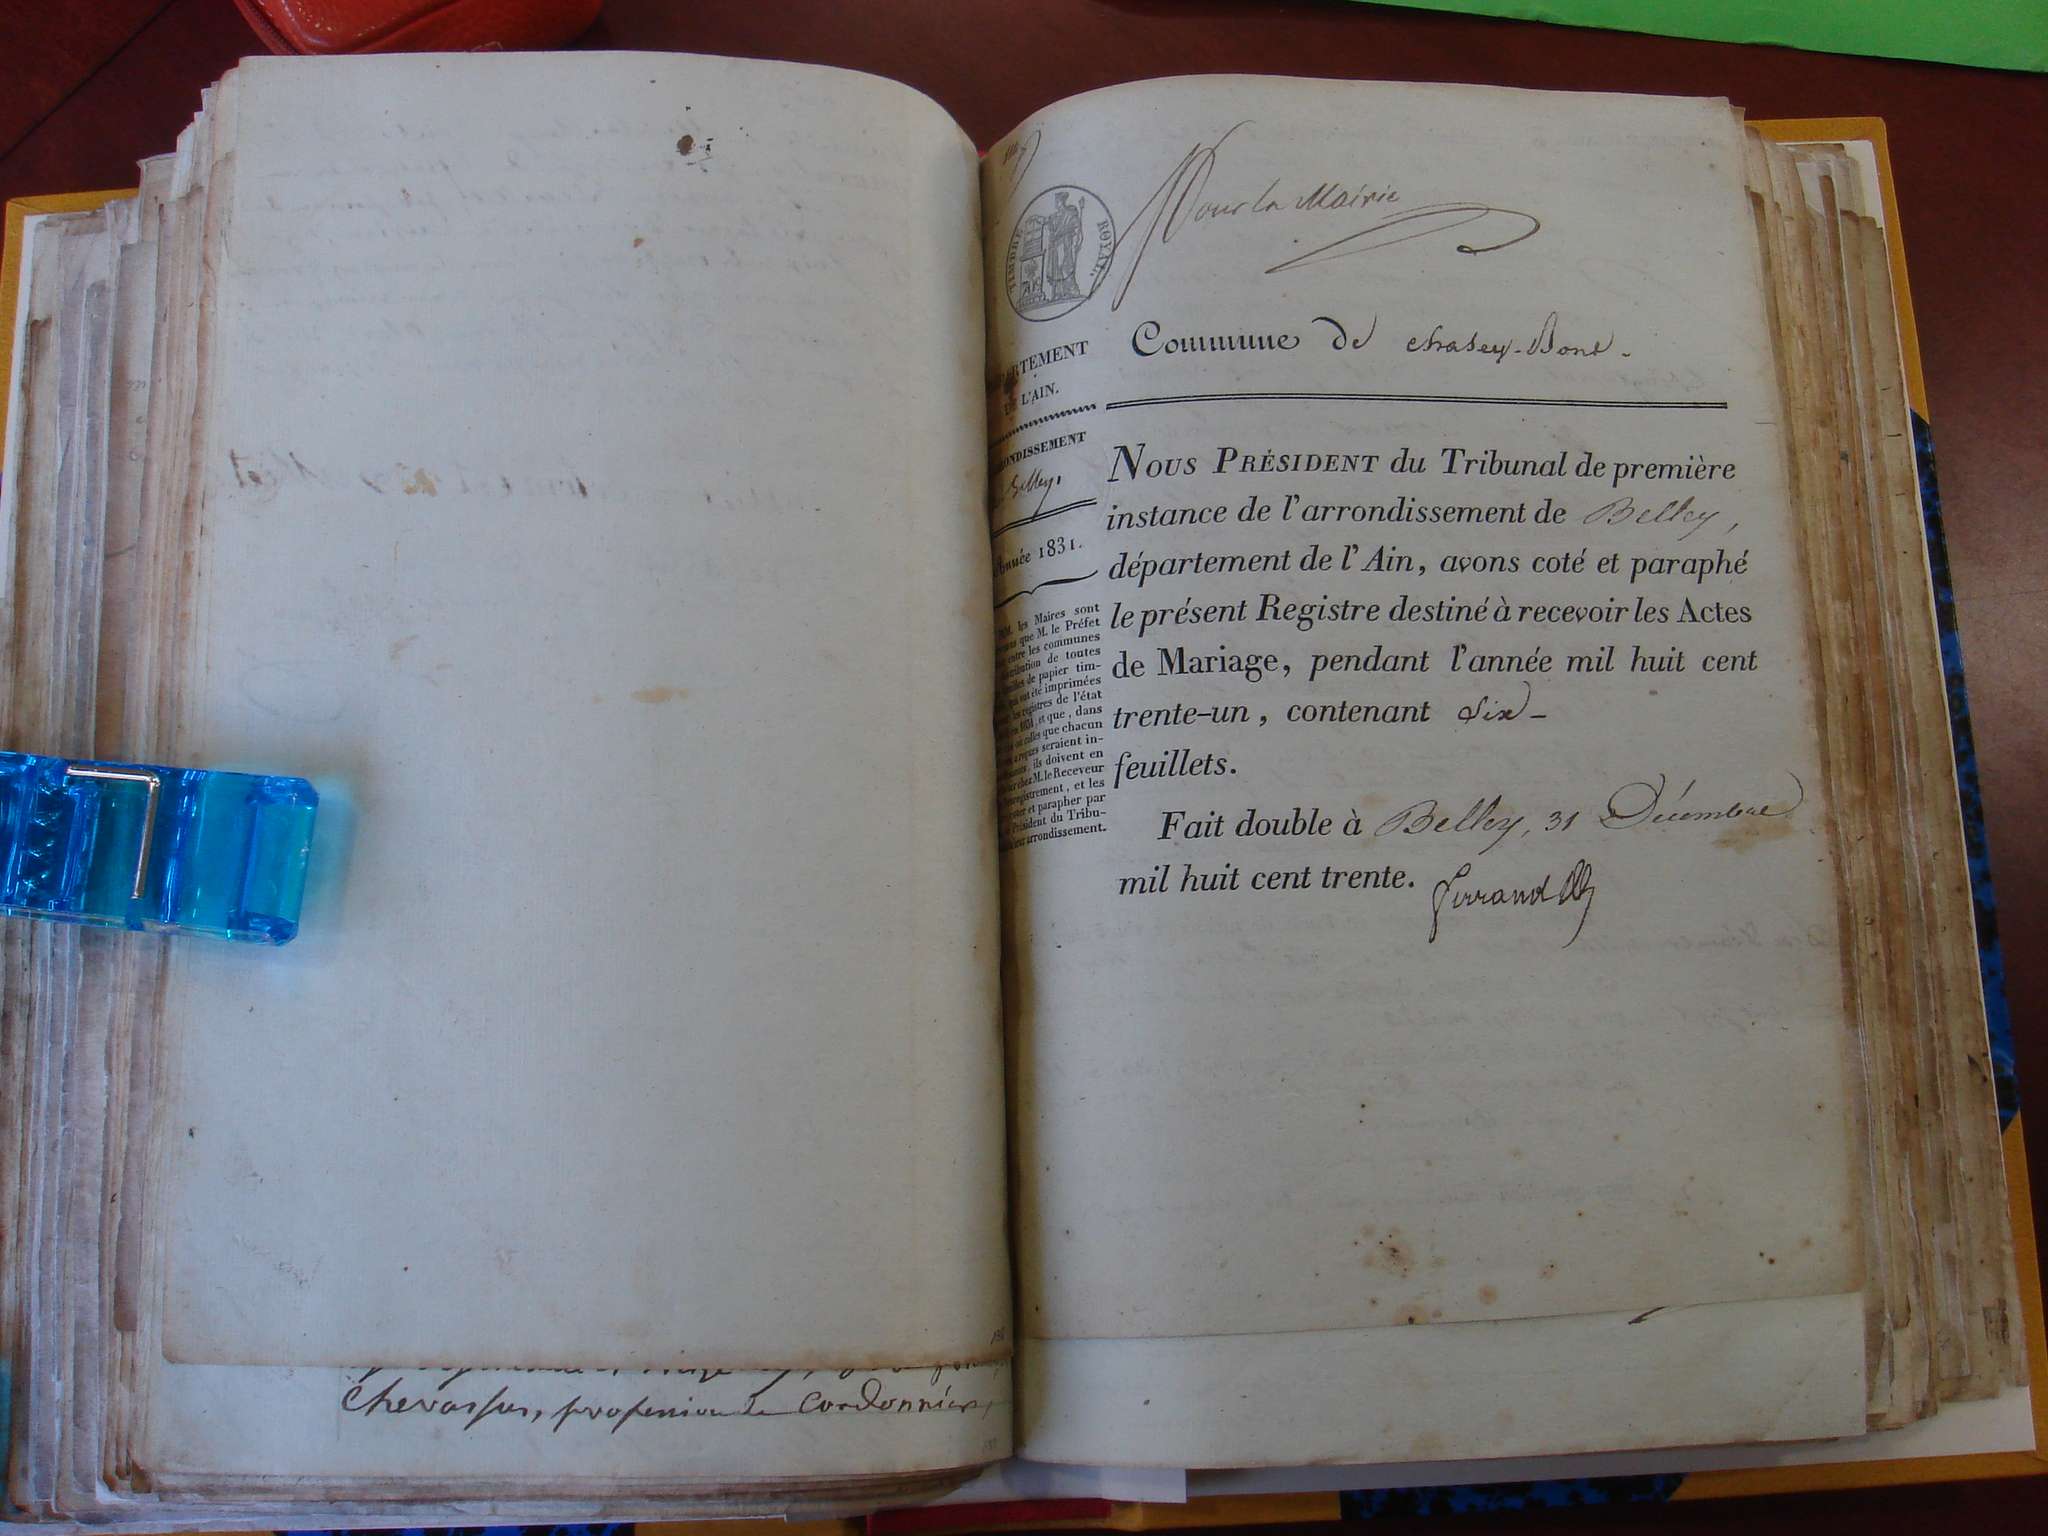 Pour la Mairie
TIMBRE ROYAL.
Commune de chasey-Bons.
DÉPARTEMENT
DE L'AIN.
ARRONDISSEMENT
Belley.
Année 1831.
MM. les Maires sont
que M. le Préfet
entre les communes
de toutes
de papier tim-
qui ont été imprimées
les registres de l'état
1831, et que, dans
où celles que chacun
reçues seraient in-
ils doivent en
chez M. le Receveur
et les
et parapher par
Président du Tribu-
arrondissement.
NOUS PRÉSIDENT du Tribunal de première
instance de l'arrondissement de Belley,
département de l'Ain, avons coté et paraphé
le présent Registre destiné à recevoir les Actes
de Mariage, pendant l'année mil huit cent
trente-un, contenant six -
feuillets.
Fait double à Belley, 31 Décembre
mil huit cent trente.
Ferrand
Chevassus, profession de Cordonnier,